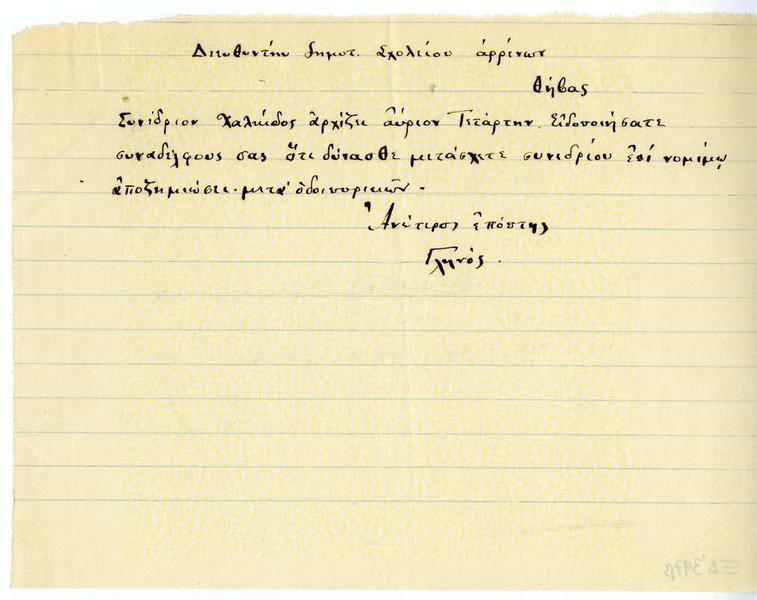 Διευθυντὴν δημοτ. Σχολείου ἀρρένων
Θήβας
Συνέδριον Χαλκίδος ἀρχίζει αὔριον Τετάρτην. Εἰδοποιήσατε
συναδέλφους σας ὅτι δύνασθε μετάσχετε συνεδρίου ἐπὶ νομίμῳ
ἀποζημιώσει μετὰ ὁδοιπορικῶν.
Ἀνώτερος ἐπόπτης
Γληνός.